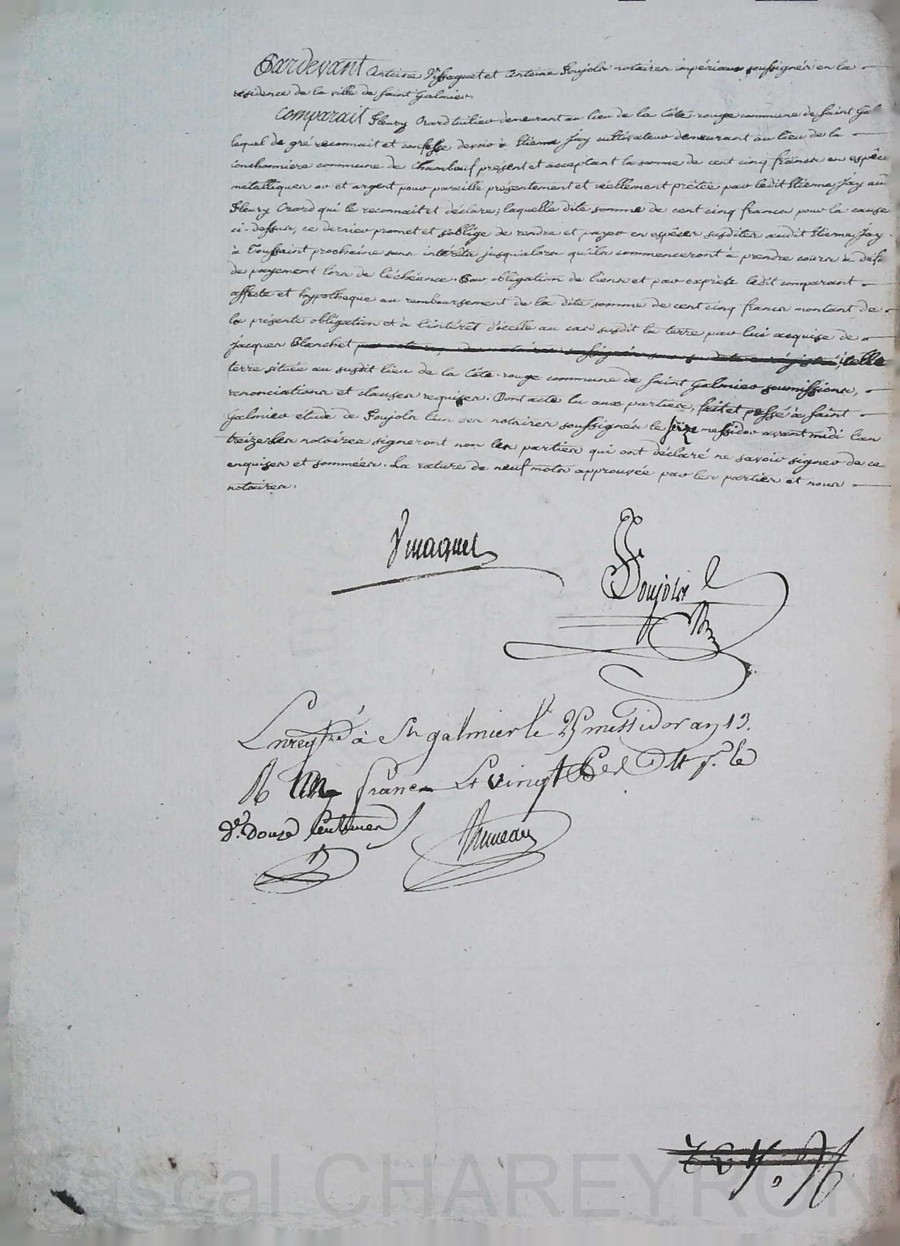 Pardevant Antoine et Antoine Poujols notaires impériaux soussignés en la
résidence de la ville de Saint Galmier.
Comparait Fleury Crard tuilier demeurant au lieu de la Côte-rouge commune de Saint Gal
lequel de gré reconnait et confesse devoir à Etienne Jay cultivateur demeurant au lieu de la
commune de Chambœuf présent et acceptant la somme de cent cinq francs en espèces
métalliques or et argent pour pareille présentement et réellement prêtée par ledit Etienne Jay au
Fleury Crard qui le reconnait et déclare; laquelle dite somme de cent cinq francs pour la cause
ci-dessus, ce dernier promet et s'oblige de rendre et payer en espèces susdites audit Etienne Jay
à Toussaint prochaine sans intérêts jusqu'alors qu'ils commenceront à prendre cours à défa
de payement lors de l'échéance. Pour obligation de biens et par exprès ledit comparant
affecte et hypothèque au remboursement de la dite somme de cent cinq francs montant de
la présente obligation et à l'intérêt d'icelle au cas susdit la terre par lui acquise de
Jacques Blanchet icelle
terre située au susdit lieu de la Côte-rouge commune de Saint Galmier soumissions,
renonciations et clauses requises. Dont acte lu aux parties, fait et passé à Saint
Galmier étude de Poujols l'un des notaires soussignés le seize messidor avant midi l'an
treize les notaires signeront non les parties qui ont déclaré ne savoir signer de ce
enquises et sommées. La rature de neuf mots approuvée par les parties et nous
notaires.
Poujols
Enregtré à St galmier le 25 messidor an 13.
R un franc et vingt
de. douze centimes